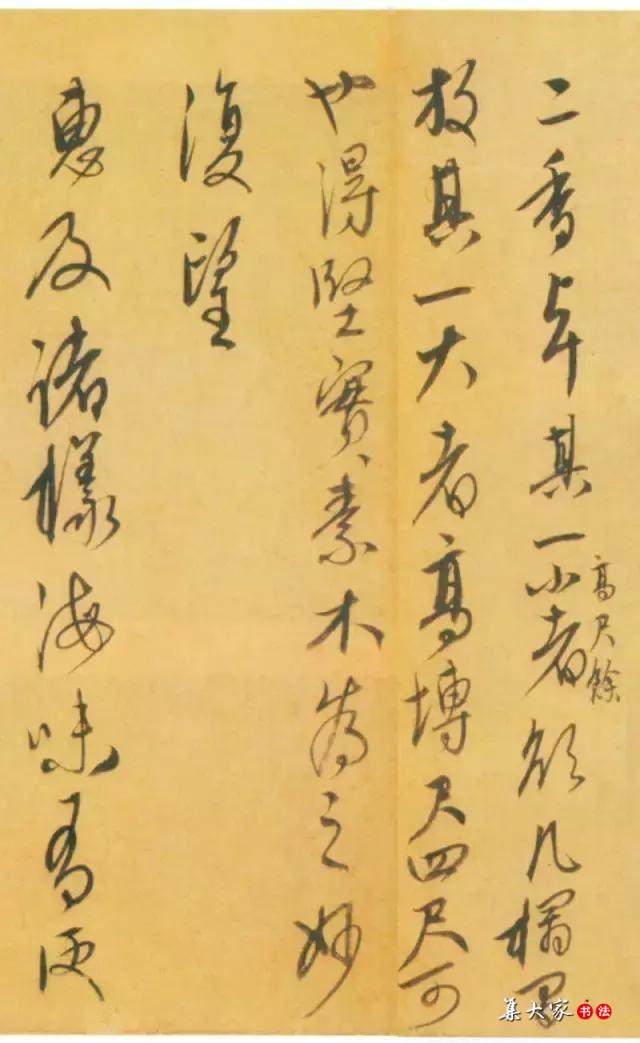 二香卓其一小者欲几榻間
高尺餘
放其一大者高塼尺四尺可
也得堅實素木為之妙
復望
惠及諸樣海味有便
集大家书法